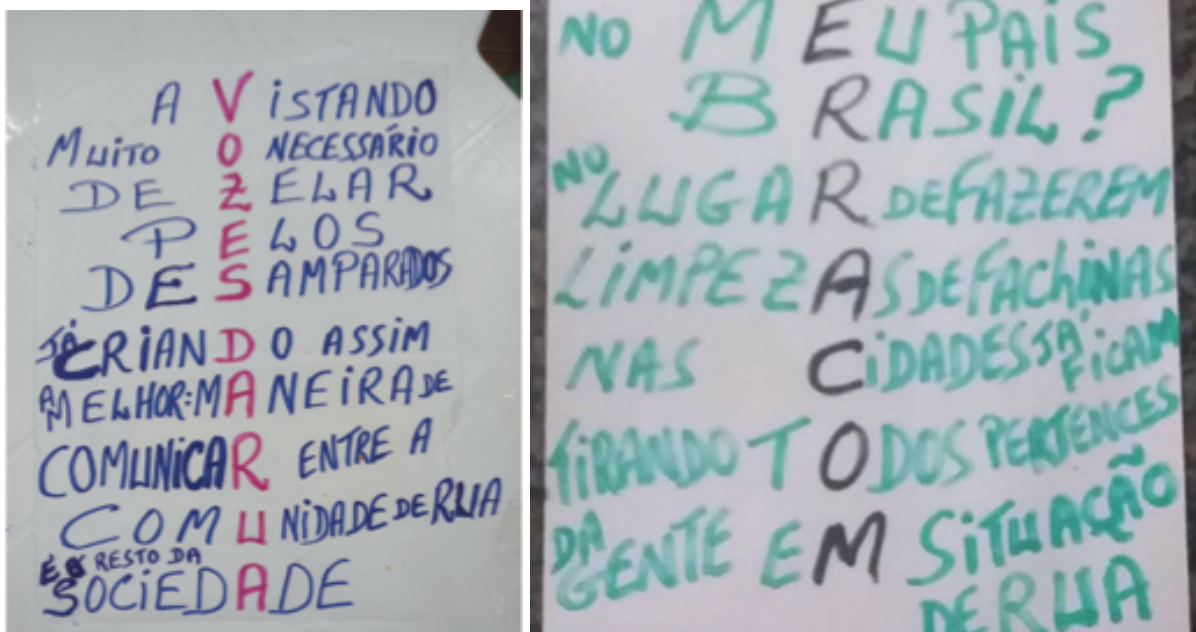 A VISTANDO
MUITO O NECESSÁRIO
DE ZELAR
PELOS
DESAMPARADOS
JÁ CRIANDO ASSIM
A MELHOR: MANEIRA DE
COMUNICAR ENTRE A
COMUNIDADE DE RUA
E O RESTO DA
SOCIEDADE
NO MEU PAÍS
BRASIL?
NO LUGAR DE FAZEREM
LIMPEZAS DE FACHINAS
NAS CIDADES JÁ FICAM
TIRANDO TODOS PERTENCES
DA GENTE EM SITUAÇÃO
DE RUA